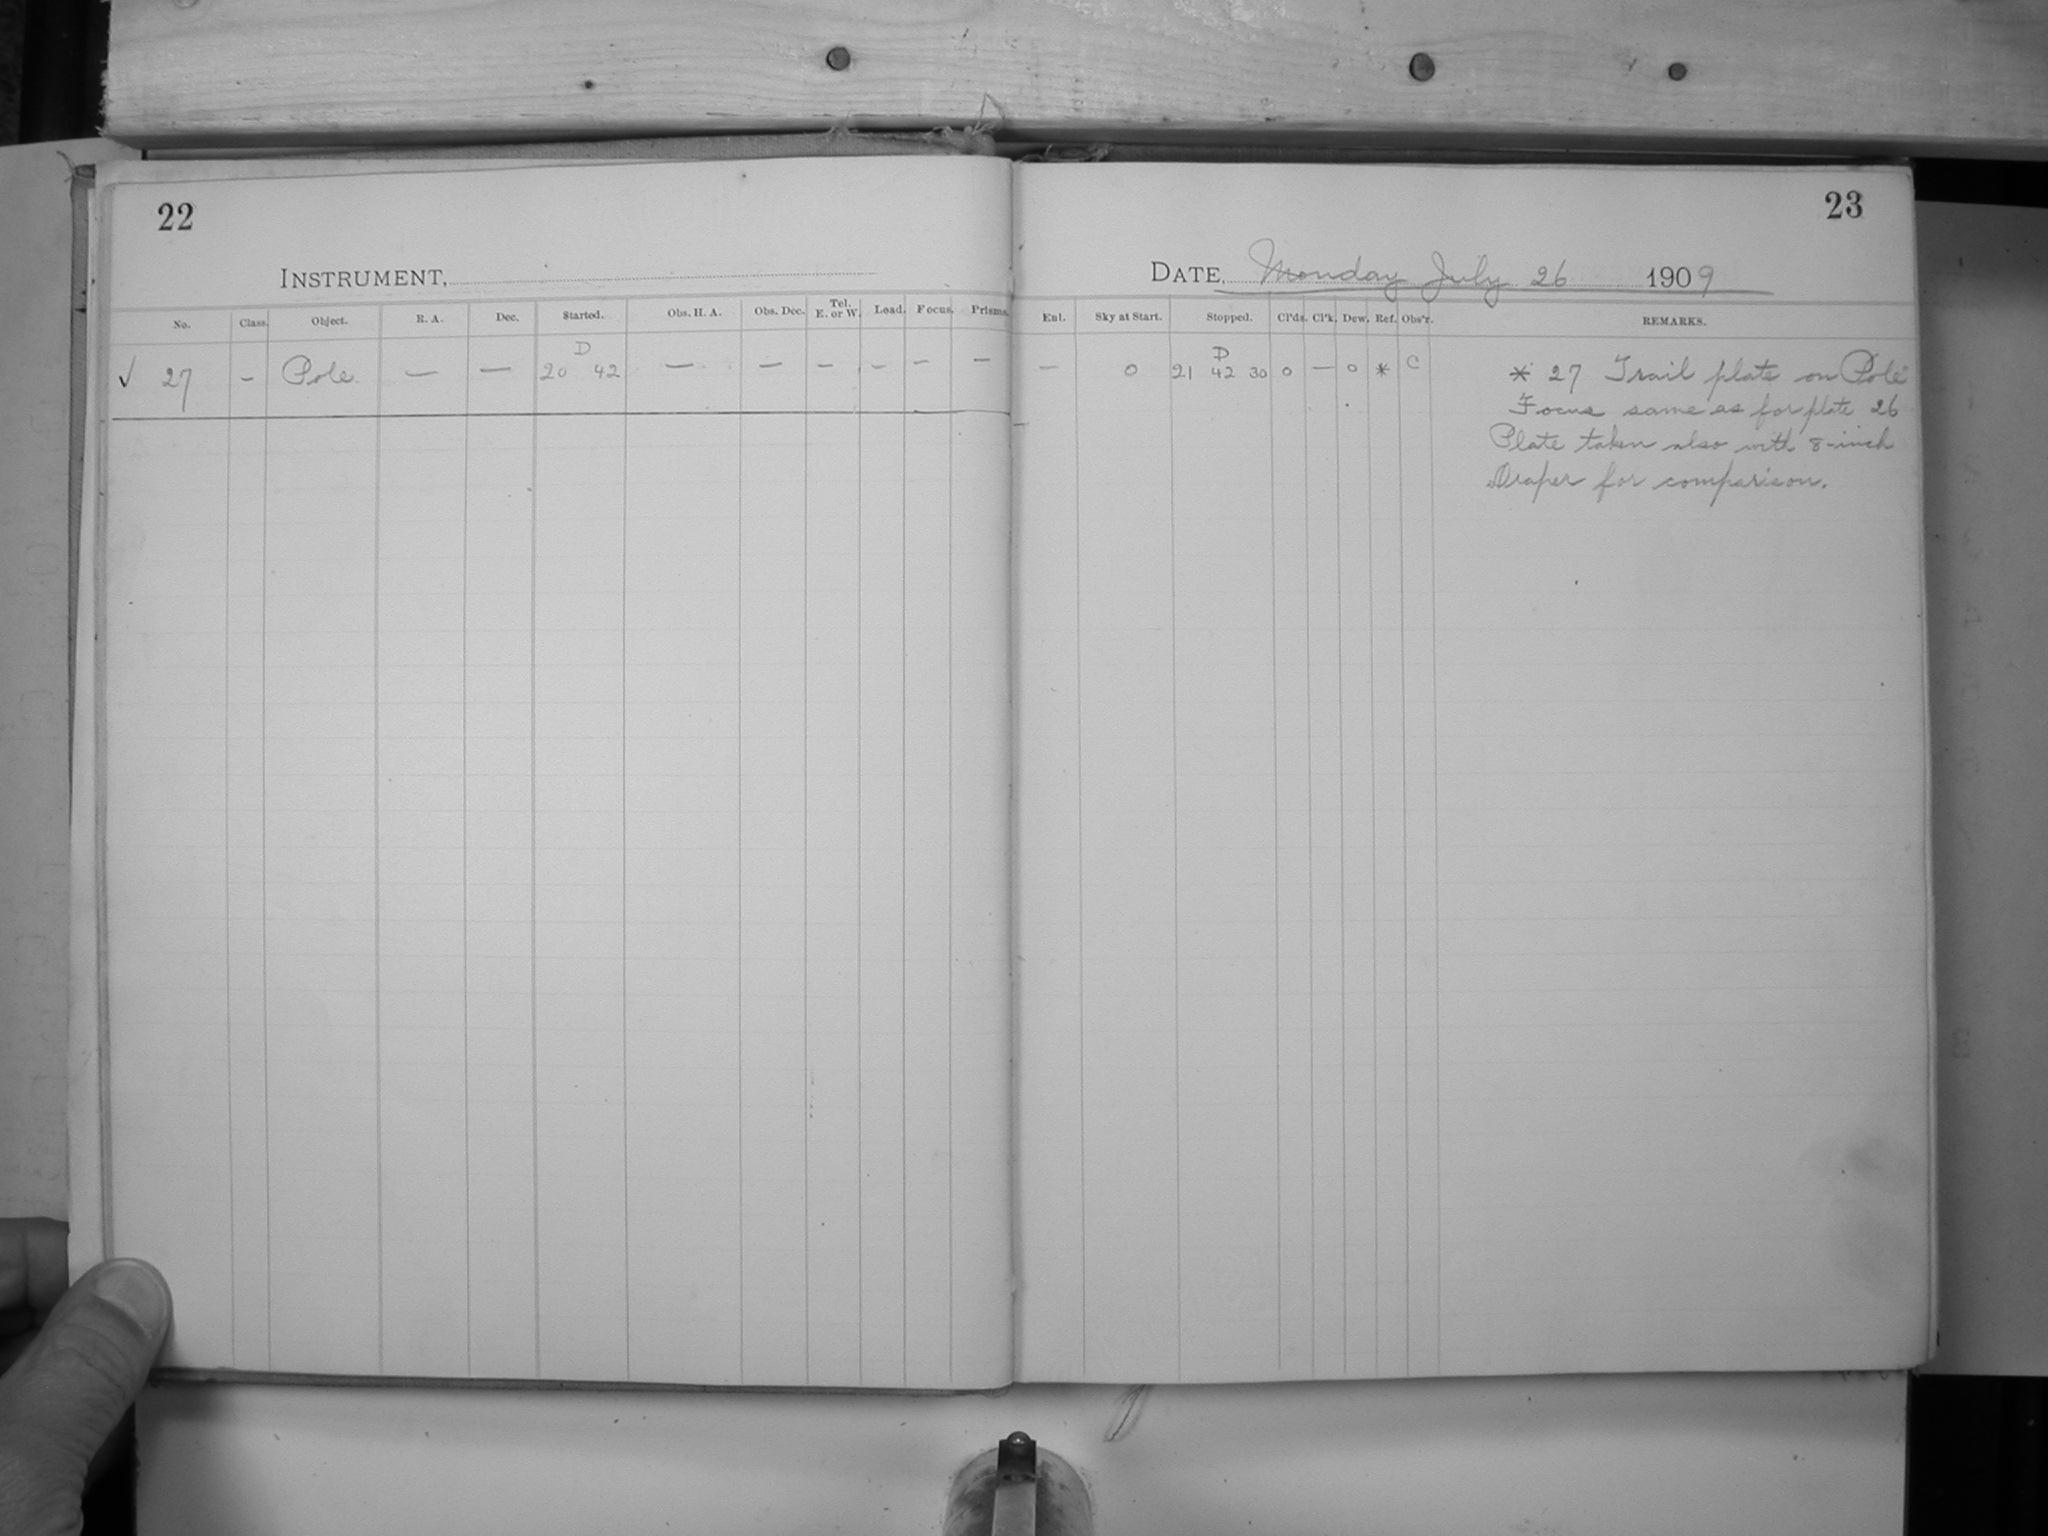 22
23
INSTRUMENT,
DATE, Monday July 26 1909
No. Class. Object. R. A. Dec. Started. Obs. H. A. Obs. Dec. Tel. E. or W. Load. Focus. Prisms. Enl. Sky at Start. Stopped. Cl'ds. Cl'k. Dew. Ref. Obs'r. REMARKS.
D D
✓ 27 – Pole — — 20 42 — — – – – – — 0 21 42 30 0 — 0 * C * 27 Trail plate on Pole
Focus same as for plate 26
Plate taken also with 8-inch
Draper for comparison.